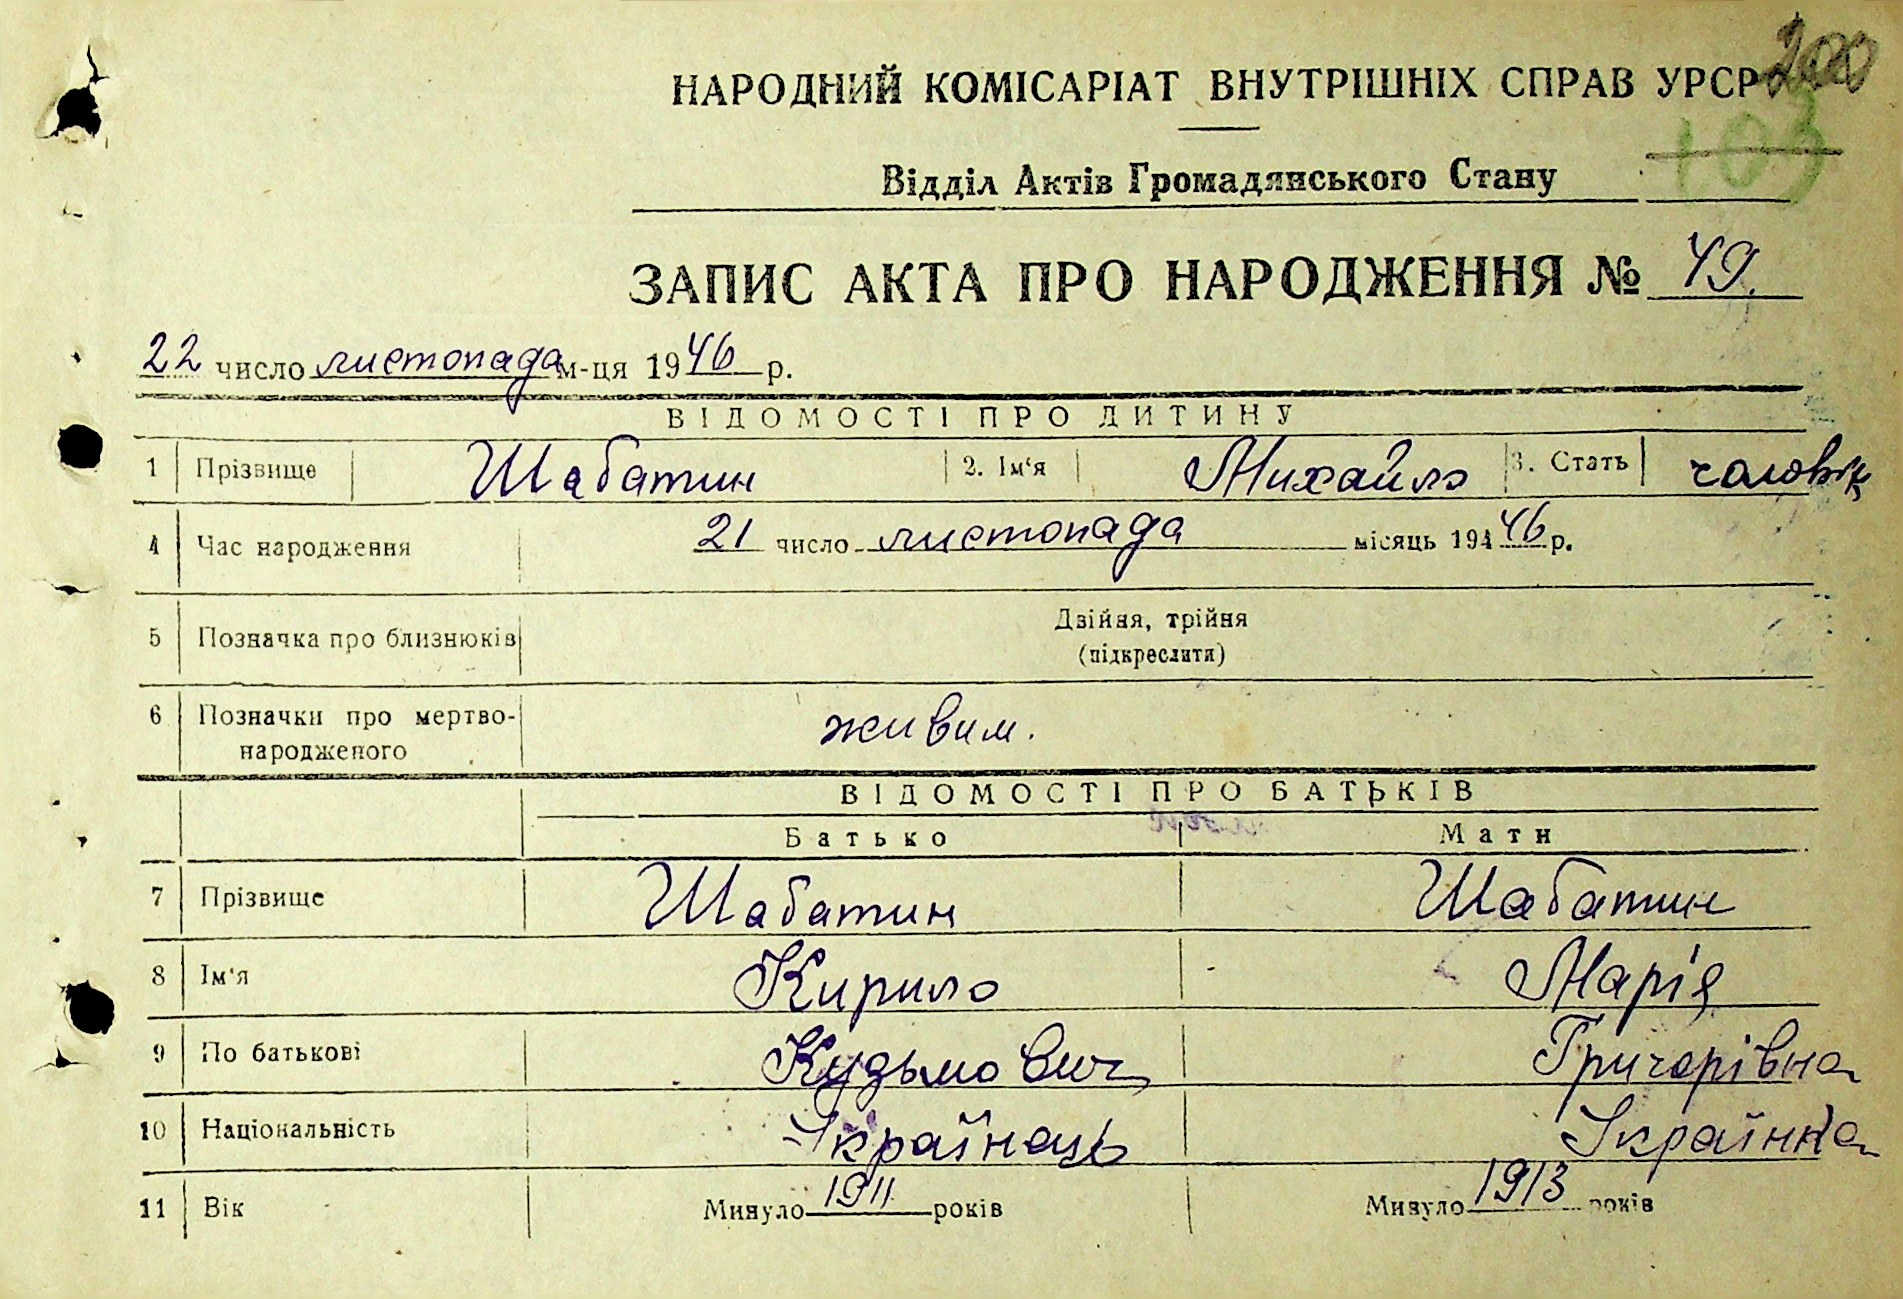 200
НАРОДНИЙ КОМІСАРІАТ ВНУТРІШНІХ СПРАВ УРСР
103
Відділ Актів Громадянського Стану
ЗАПИС АКТА ПРО НАРОДЖЕННЯ № 49.
22 число листопада м-ця 1946 р.
ВІДОМОСТІ ПРО ДИТИНУ
1 Прізвище Шабатин 2. Ім'я Михайло 3. Стать чоловік
4 Час народження 21 число листопада місяць 194 46 р.
5 Позначка про близнюків Двійня, трійня
(підкреслити)
6 Позначки про мертво-
народженого живим.
ВІДОМОСТІ ПРО БАТЬКІВ
Батько Мати
7 Прізвище Шабатин Шабатин
8 Ім'я Кирило Марія
9 По батькові Кудьмович Григорівна
10 Національність Українаць Українка
11 Вік Минуло 1911 років Минуло 1913 років